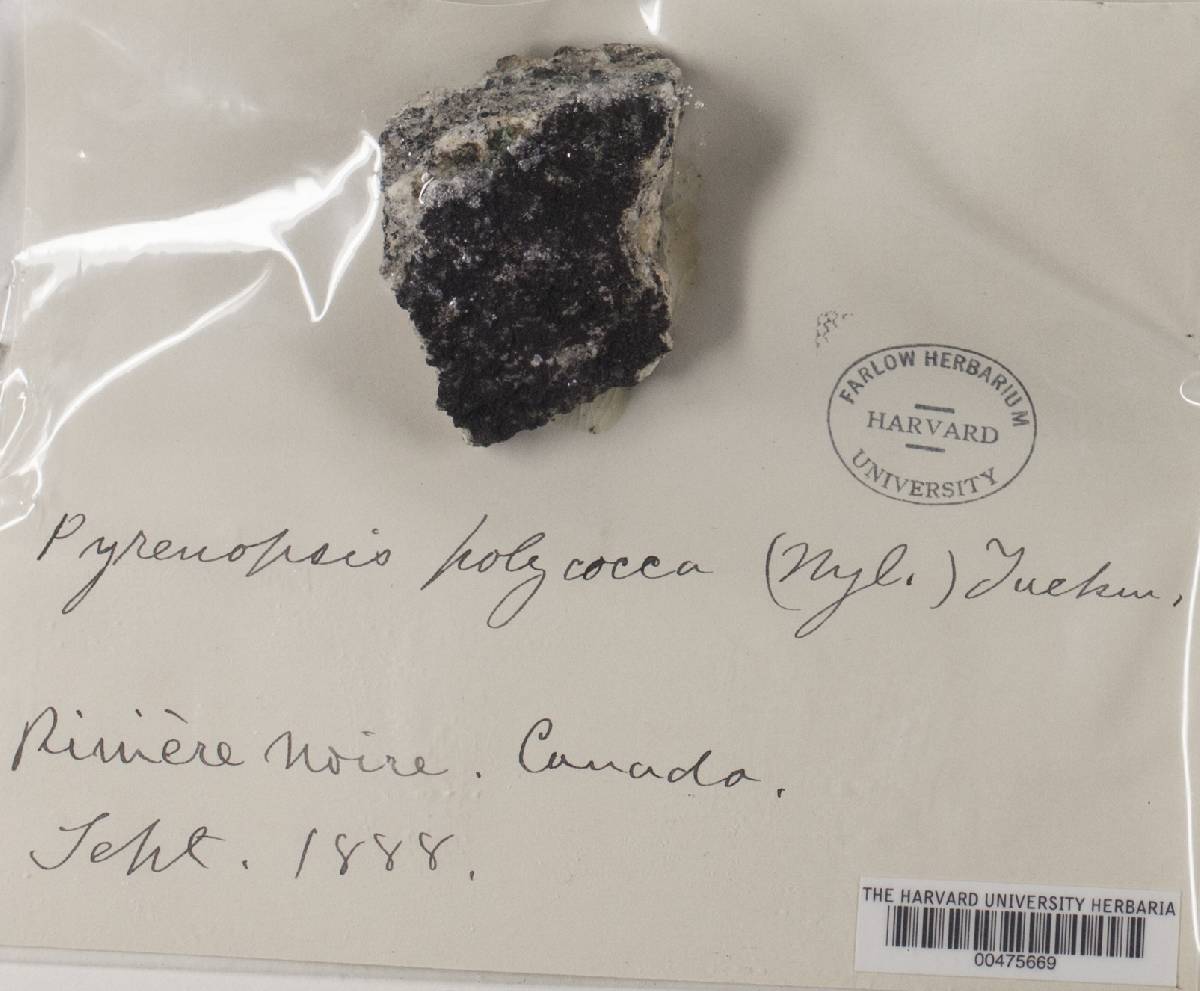 FARLOW HERBARIUM
HARVARD
UNIVERSITY
Pyrenopsis polycocca (Nyl.) Tuckm.
Rivière Noire. Canada.
Sept. 1888.
THE HARVARD UNIVERSITY HERBARIA
00475669